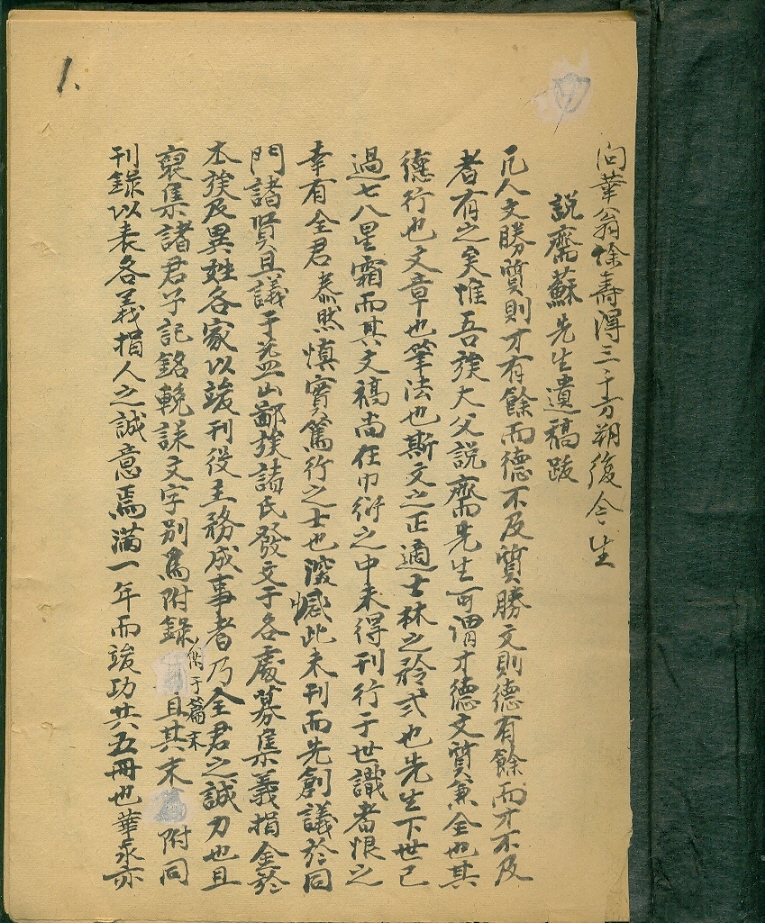 向華翁條壽得三千万朔後今生
說齋蘇先生遺稿跋
凡人文勝質則才有餘而德不及質勝文則德有餘而才不及
者有之矣惟吾族大父說齋先生可謂才德文質兼全也其
德行也文章也筆法也斯文之正適士林之矜式也先生下世已
過七八星霜而其文稿尚在巾衍之中未得刊行于世識者恨之
幸有全君泰然慎實篤行之士也深憾此未刊而先創議於同
門諸賢且議于益山鄙族諸氏發文于各處募集義捐金於
本族及異姓各家以竣刊役主務成事者乃全君之誠力也且
裒集諸君子記銘輓誄文字別爲附錄
偁于篇末
且其末
附同
刊錄以表各義捐人之誠意焉滿一年而竣功共五冊也華永亦
1.